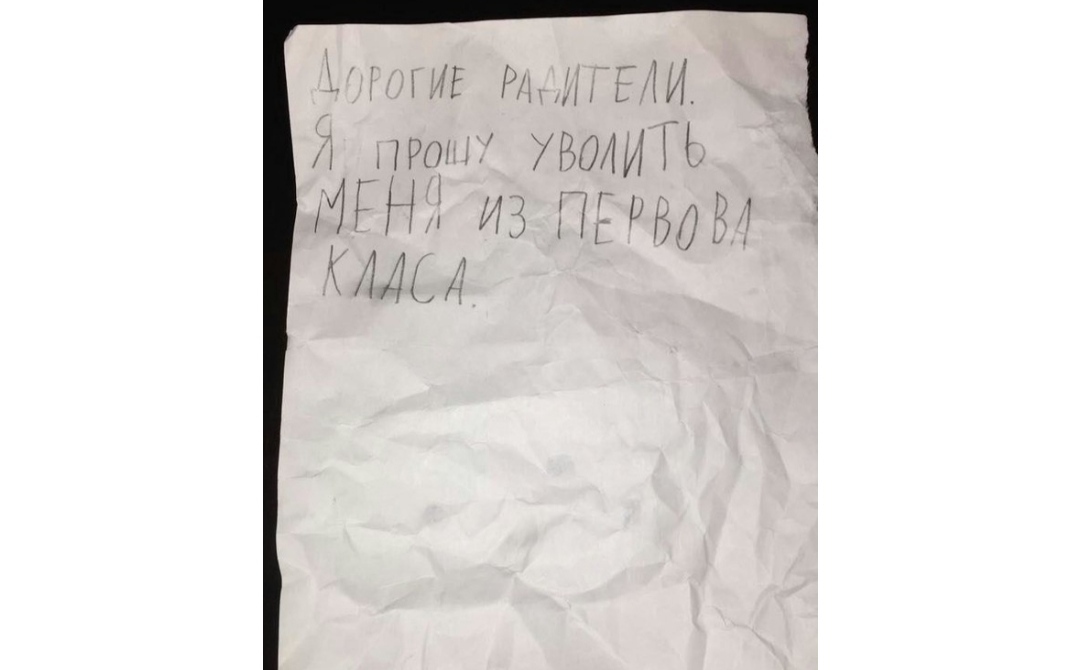 ДОРОГИЕ РАДИТЕЛИ.
Я ПРОШУ УВОЛИТЬ
МЕНЯ ИЗ ПЕРВОВА
КЛАСА.